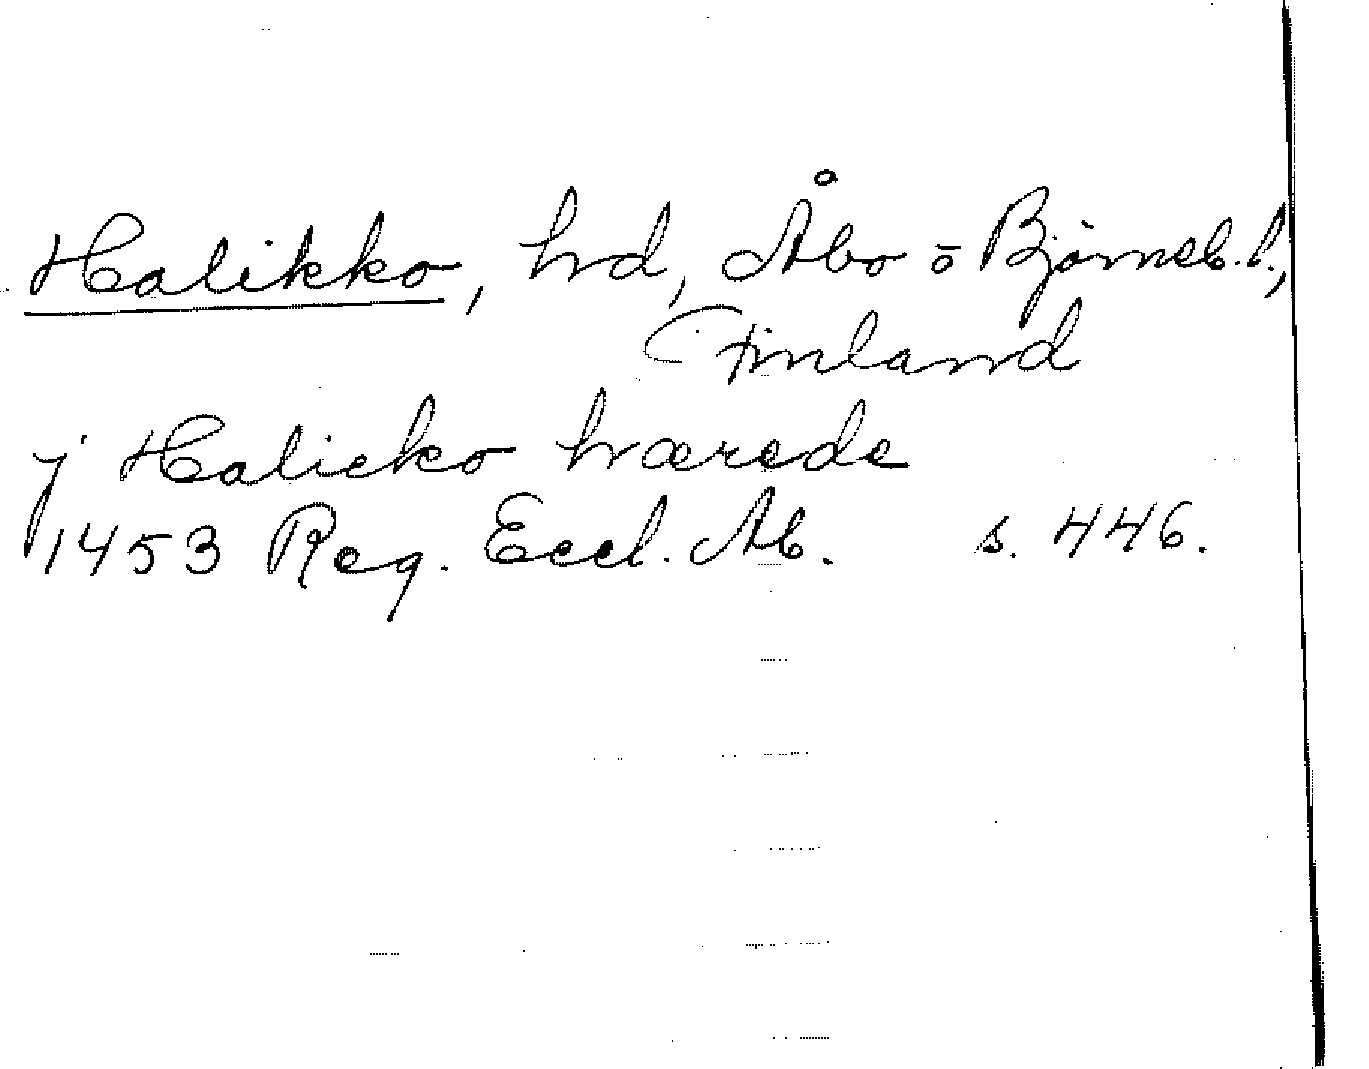 Halikko, hd, Åbo ō Björneb. l.,
Finland
j Halicko hærede
1453 Reg. Eccl. Ab. s. 446.